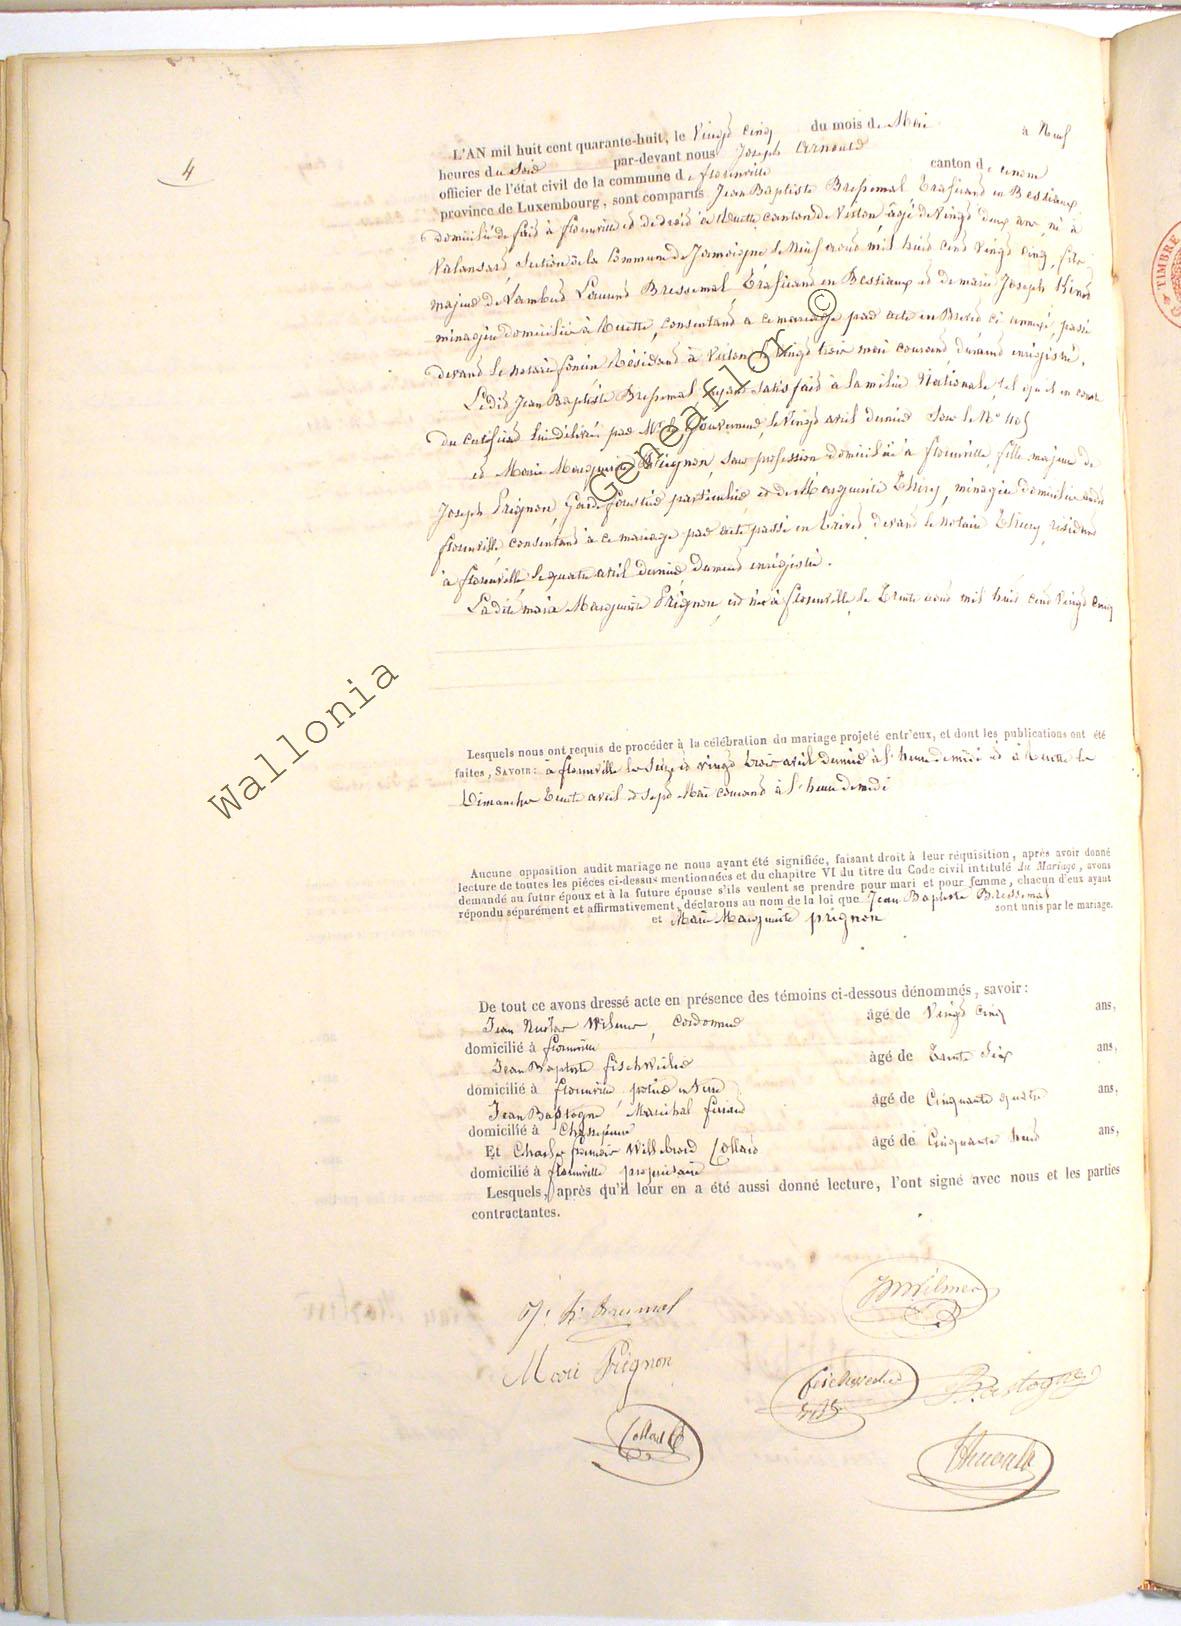 4
L'AN mil huit cent quarante-huit, le Vingt Cinq du mois de Mai à Neuf
heures du Soir par-devant nous Joseph Arnould
officier de l'état civil de la commune de florenville canton de
province de Luxembourg, sont comparus Jean Baptiste Bressemal trafiquant en Bestiaux
domicilié de fait à florenville et de droit à Ruette canton de Virton âgé de Vingt deux ans, né à
Valansart Section de la Commune de Jamoigne le neuf août mil huit cent vingt cinq, fils
majeur de Lambert Bressemal trafiquant en Bestiaux et de marie Joseph
ménagère domiciliée à Ruette, consentant à ce mariage par acte en Brevet ci annexé, passé
devant le notaire Résidant à Virton le Vingt trois mai courant, dument enregistré.
Ledit Jean Baptiste Bressemal ayant satisfait à la milice Nationale, tel qu'il en conste
du certificat lui délivré par Mr le Gouverneur, le Vingt avril dernier sous le No
et Marie Marguerite Prignon, sans profession domiciliée à florenville, fille majeure de
Joseph Prignon, Garde forestier particulier et de Marguerite Thiry, ménagère domiciliés audit
florenville, consentant à ce mariage par acte passé en brevet devant le notaire Thiry, résidant
à florenville le quatre avril dernier, dument enregistré.
Ladite marie Marguerite Prignon est née à florenville le trente août mil huit cent vingt cinq
Lesquels nous ont requis de procéder à la célébration du mariage projeté entr'eux, et dont les publications ont été
faites, SAVOIR: à florenville les Seize et vingt trois avril dernier à l'heure de midi et à Ruette les
Dimanches trente avril et sept Mai courant à l'heure de midi
Aucune opposition audit mariage ne nous ayant été signifiée, faisant droit à leur réquisition, après avoir donné
lecture de toutes les pièces ci-dessus mentionnées et du chapitre VI du titre du Code civil intitulé du Mariage, avons
demandé au futur époux et à la future épouse s'ils veulent se prendre pour mari et pour femme, chacun d'eux ayant
répondu séparément et affirmativement, déclarons au nom de la loi que Jean Baptiste Bressemal
et Marie Marguerite prignon sont unis par le mariage.
De tout ce avons dressé acte en présence des témoins ci-dessous dénommés, savoir:
Jean Wilmer, Cordonnier âgé de Vingt Cinq ans,
domicilié à florenville
Jean Baptiste fischweiler âgé de trente Six ans,
domicilié à florenville
Jean Bastogne, Maréchal ferrant âgé de Cinquante quatre ans,
domicilié à Chassepierre
Et Charles françois Willebrord Collard âgé de Cinquante huit ans,
domicilié à florenville propriétaire
Lesquels, après qu'il leur en a été aussi donné lecture, l'ont signé avec nous et les parties
contractantes.
JNWilmer
Marie Prignon
Bastogne
Collard
Arnould
Wallonia
Geneaflor ©
TIMBRE